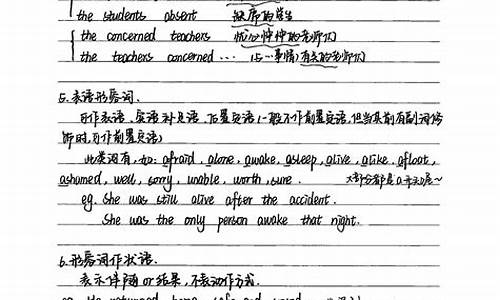 the students absent 缺席的学生
the concerned teachers 忧心忡忡的老师们
the teachers concerned ... (与…事情)有关的老师们
5. 表语形容词.
可作表语、宾语补足语、后置定语(一般不作前置定语,但当其前有副词修
饰时,可作前置定语)
此类词有,如: afraid, alone, awake, asleep, alive, alike, afloat,
ashamed, well, sorry, unable, worth, sure. 大部分都是a开头哦~
eg. She was still alive after the accident.
She was the only person awake that night.
6. 形容词作状语.
表示伴随or结果,不表动作方式.
eg. He returned home safe and